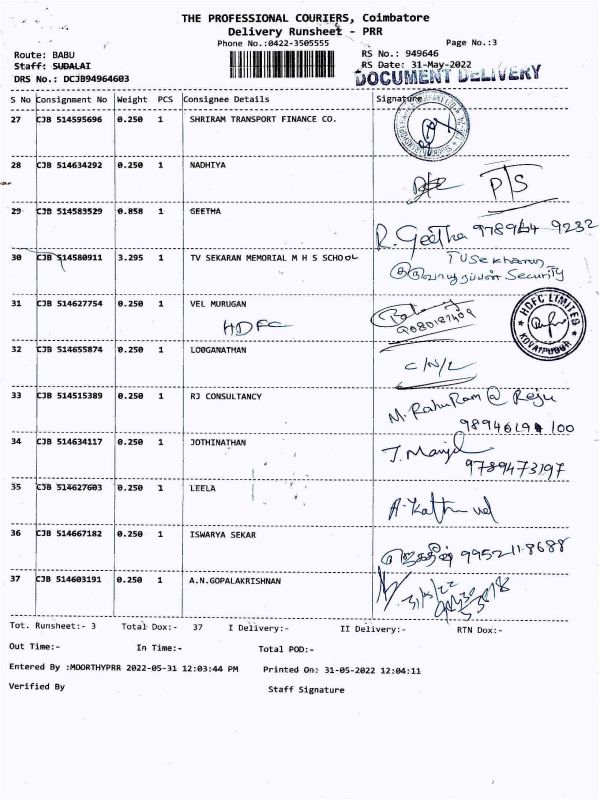 THE PROFESSIONAL COURIERS, Coimbatore
Delivery Runsheet - PRR
Phone No.:0422-3505555
Page No.:3
Route: BABU
RS No.: 949646
Staff: SUDALAI
RS Date: 31-May-2022
DRS No.: DCJB94964603
DOCUMENT DELIVERY
S No Consignment No Weight PCS Consignee Details Signature
27 CJB 514595696 0.250 1 SHRIRAM TRANSPORT FINANCE CO.
28 CJB 514634292 0.250 1 NADHIYA P/S
29 CJB 514583529 0.858 1 GEETHA R. Geetha
30 CJB 514580911 3.295 1 TV SEKARAN MEMORIAL M H S SCHOOL
Security
31 CJB 514627754 0.250 1 VEL MURUGAN
HDFC 9080187409
HDFC LIMITED
KOVAIPUDUR
32 CJB 514655874 0.250 1 LOGANATHAN
C/N/L
33 CJB 514515389 0.250 1 RJ CONSULTANCY
34 CJB 514634117 0.250 1 JOTHINATHAN
9789473197
35 CJB 514627603 0.250 1 LEELA
36 CJB 514667182 0.250 1 ISWARYA SEKAR
9952118688
37 CJB 514603191 0.250 1 A.N.GOPALAKRISHNAN
31/5/22
Tot. Runsheet:- 3 Total Dox:- 37 I Delivery:- II Delivery:- RTN Dox:-
Out Time:- In Time:- Total POD:-
Entered By :MOORTHYPRR 2022-05-31 12:03:44 PM Printed On: 31-05-2022 12:04:11
Verified By Staff Signature